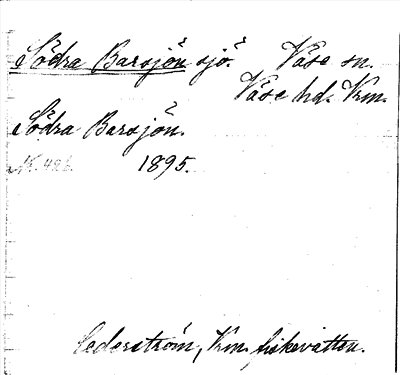 Södra Barsjön sjö. Väse sn.
Väse hd. Vrm.
Södra Barsjön.
1895.
Cederström, Vrm. fiskevatten.